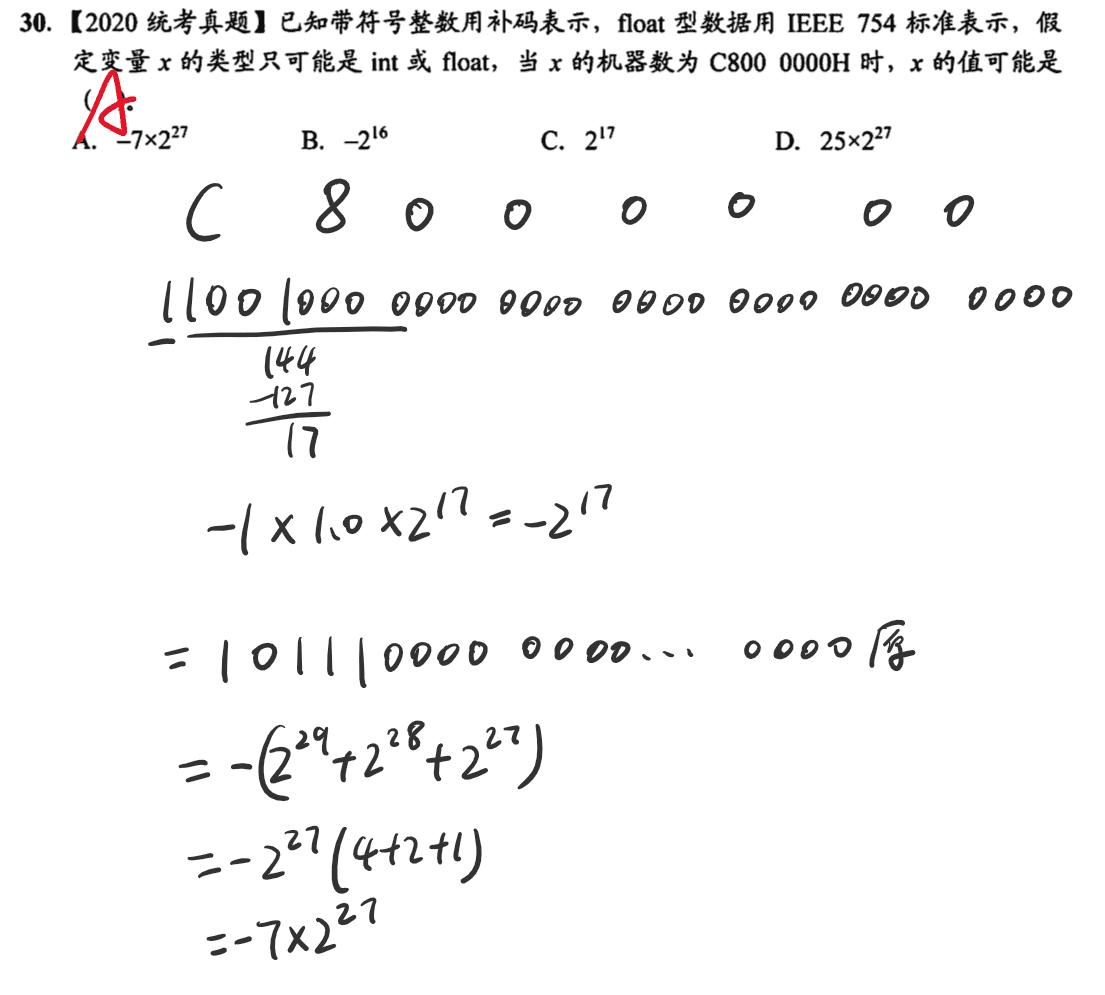 30.【2020 统考真题】已知带符号整数用补码表示，float 型数据用 IEEE 754 标准表示，假
定变量 x 的类型只可能是 int 或 float，当 x 的机器数为 C800 0000H 时，x 的值可能是
( A ).
A. -7×2²⁷ B. -2¹⁶ C. 2¹⁷ D. 25×2²⁷
C 8 0 0 0 0 0 0
1100 1000 0000 0000 0000 0000 0000 0000
144
-127
17
-1×1.0×2¹⁷=-2¹⁷
=101110000 0000... 0000原
=-(2²⁹+2²⁸+2²⁷)
=-2²⁷(4+2+1)
=-7×2²⁷